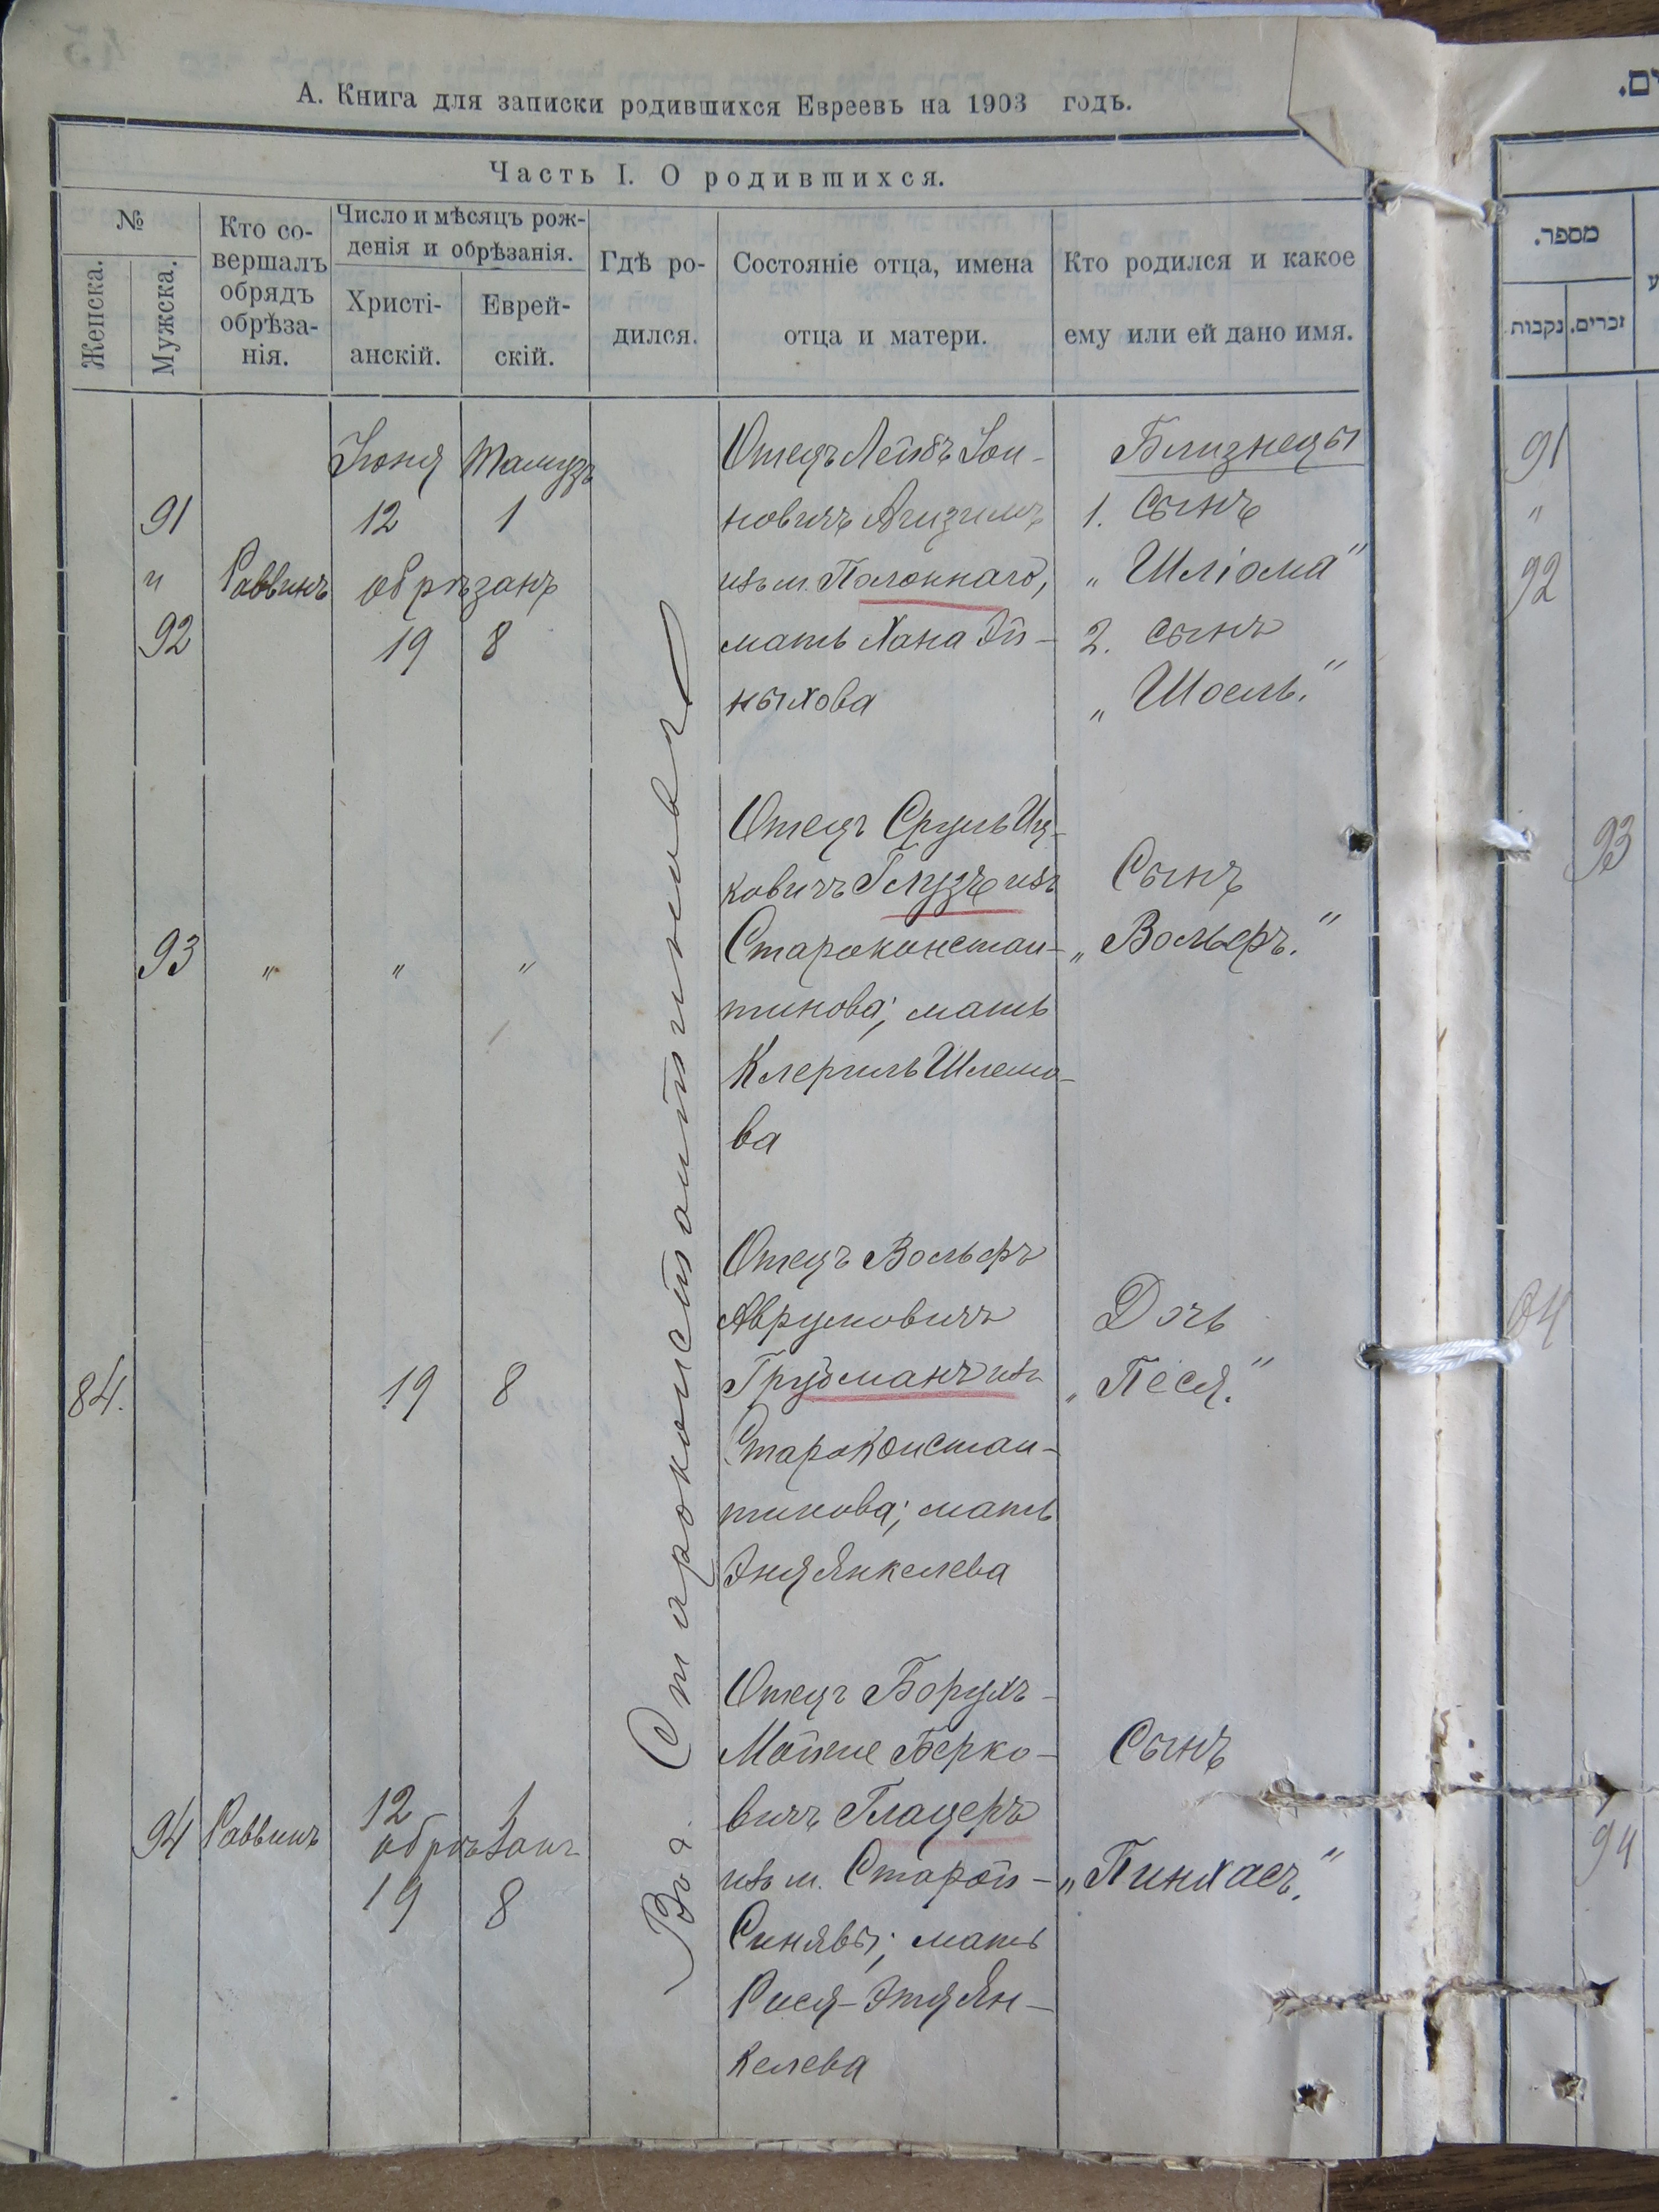 А. Книга для записки родившихся Евреевъ на 1903 годъ.
Часть I. О родившихся.
№
Женска.
Мужска.
Кто со-
вершалъ
обрядъ
обрѣза-
нія.
Число и мѣсяцъ рож-
денія и обрѣзанія.
Христі-
анскій.
Еврей-
скій.
Гдѣ ро-
дился.
Состояніе отца, имена
отца и матери.
Кто родился и какое
ему или ей дано имя.
91
и
92
Раввинъ
Іюня Тамузъ
12 1
обрѣзанъ
19 8
Въ г. Староконстантиновѣ
Отецъ Лейбъ Іон-
новичъ
изъ м. Полоннаго,
мать Хана Эй-
ныхова
Близнецы
1. Сынъ
„Шліома"
2. Сынъ
„Шоель."
93 „ „ „
Отецъ Сруль Иц-
ковичъ Глузъ изъ
Староконстан-
тинова; мать
Клериль Шлемо-
ва
Сынъ
„Вольфъ."
84. 19 8
Отецъ Вольфъ
Аврумовичъ
Гройсманъ изъ
Староконстан-
тинова; мать
Эня Янкелева
Дочь
„Песя."
94 Раввинъ
12 1
обрѣзанъ
19 8
Отецъ Борухъ-
Мойше Берко-
вичъ Глацеръ
изъ м. Старой-
Синявы; мать
Рися-Этя Ян-
келева
Сынъ
„Пинхасъ."
מספר.
נקבות
זכרים.
91
"
92
93
84
94